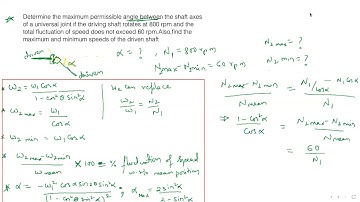 * Determine the maximum permissible angle between the shaft axes
of a universal joint if the driving shaft rotates at 800 rpm and the
total fluctuation of speed does not exceed 60 rpm.Also,find the
maximum and minimum speeds of the driven shaft
α = ? , N₁ = 800 rpm
N₂max = ?
N₂min = ?
driven
α
N₂max - N₂min = 60 rpm
driver
* ω₂ = ω₁cosα / 1 - cos²θ sin²α
We can replace
ω₂/ω₁ = N₂/N₁
* ω₂max = ω₁/cosα
* ω₂min = ω₁ cosα
* ω₂max - ω₂min / ωmean × 100 = % fluctuation of speed
w.r.to mean position
* α = -ω₁² cosα sin2θ sin²α / (1 - cos²θ sin²α)² ; αmax 2sin²α / 2 - sin²α
N₂max - N₂min / Nmean = N₁/cosα - N₁cosα / N₁
⇒ 1 - cos²α / cosα = N₂max - N₂min / Nmean
= 60 / N₁